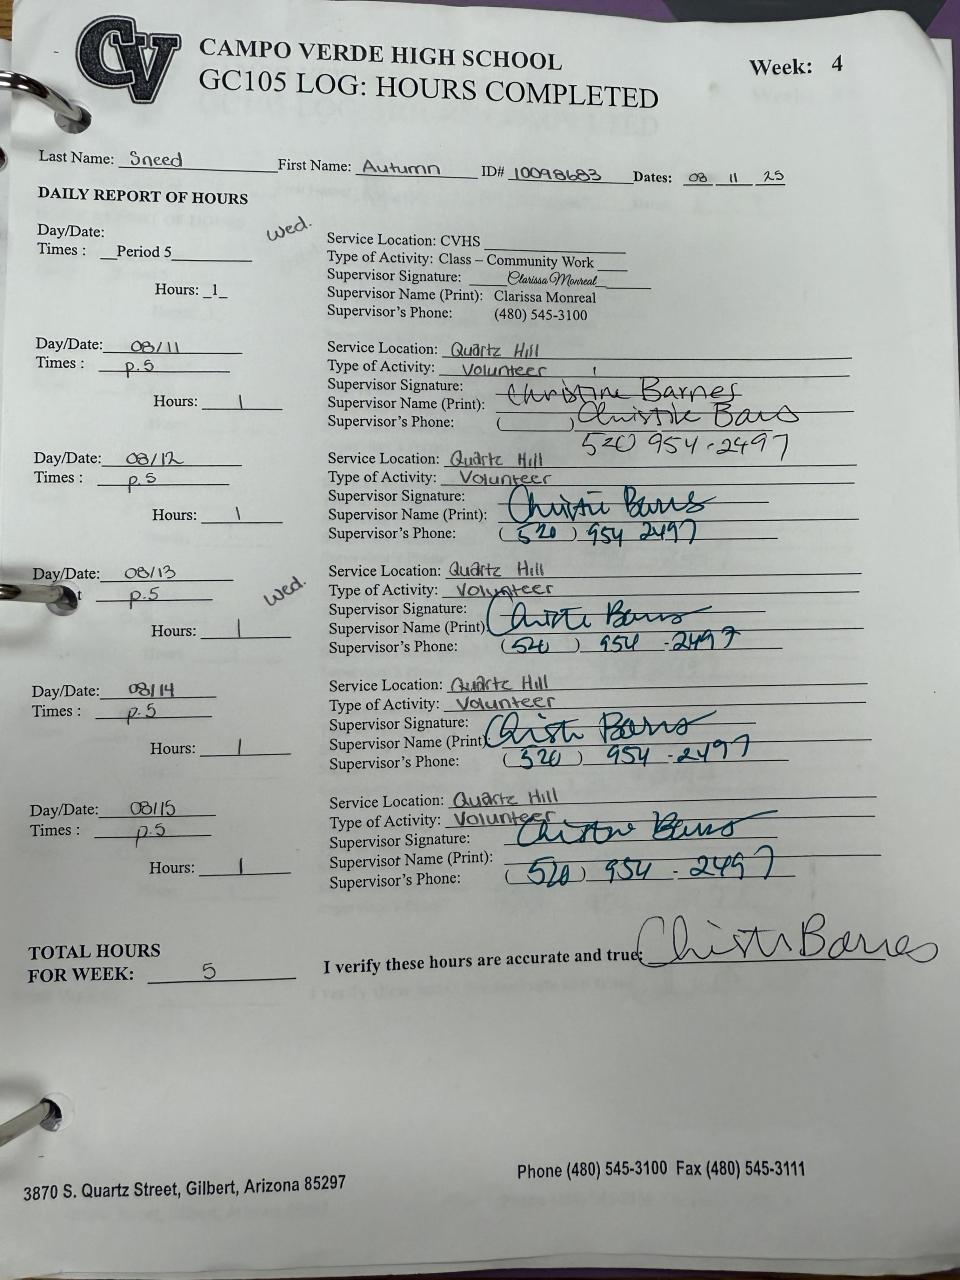 CV
CAMPO VERDE HIGH SCHOOL
GC105 LOG: HOURS COMPLETED
Week: 4
Last Name: Sneed First Name: Autumn ID# 10098683 Dates: 08 11 25
DAILY REPORT OF HOURS
Wed.
Day/Date:
Times : Period 5
Hours: 1
Service Location: CVHS
Type of Activity: Class – Community Work
Supervisor Signature: Clarissa Monreal
Supervisor Name (Print): Clarissa Monreal
Supervisor's Phone: (480) 545-3100
Day/Date: 08/11
Times : p.5
Hours: 1
Service Location: Quartz Hill
Type of Activity: Volunteer
Supervisor Signature: Christine Barnes
Supervisor Name (Print):
Supervisor's Phone: ( )
520 954-2497
Day/Date: 08/12
Times : p.5
Hours: 1
Service Location: Quartz Hill
Type of Activity: Volunteer
Supervisor Signature:
Supervisor Name (Print):
Supervisor's Phone: (520) 954 2497
Day/Date: 08/13
Wed.
t p.5
Hours: 1
Service Location: Quartz Hill
Type of Activity: Volunteer
Supervisor Signature:
Supervisor Name (Print):
Supervisor's Phone: (520) 954-2497
Day/Date: 08/14
Times : p.5
Hours: 1
Service Location: Quartz Hill
Type of Activity: Volunteer
Supervisor Signature:
Supervisor Name (Print):
Supervisor's Phone: (520) 954-2497
Day/Date: 08/15
Times : p.5
Hours: 1
Service Location: Quartz Hill
Type of Activity: Volunteer
Supervisor Signature:
Supervisor Name (Print):
Supervisor's Phone: (520) 954-2497
TOTAL HOURS
FOR WEEK: 5
I verify these hours are accurate and true:
3870 S. Quartz Street, Gilbert, Arizona 85297
Phone (480) 545-3100 Fax (480) 545-3111